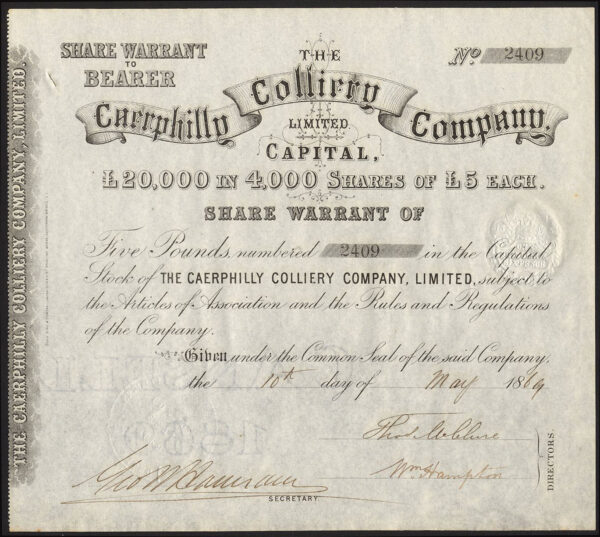 SHARE WARRANT
TO
BEARER
THE
Nº 2409
Caerphilly Colliery Company.
LIMITED
CAPITAL,
£20,000 IN 4,000 SHARES OF £5 EACH.
SHARE WARRANT OF
Five Pounds, numbered 2409 in the Capital
Stock of THE CAERPHILLY COLLIERY COMPANY, LIMITED, subject to
the Articles of Association and the Rules and Regulations
of the Company.
Given under the Common Seal of the said Company,
the 10th day of May 1869
Wm Hampton
DIRECTORS.
SECRETARY.
THE CAERPHILLY COLLIERY COMPANY, LIMITED.